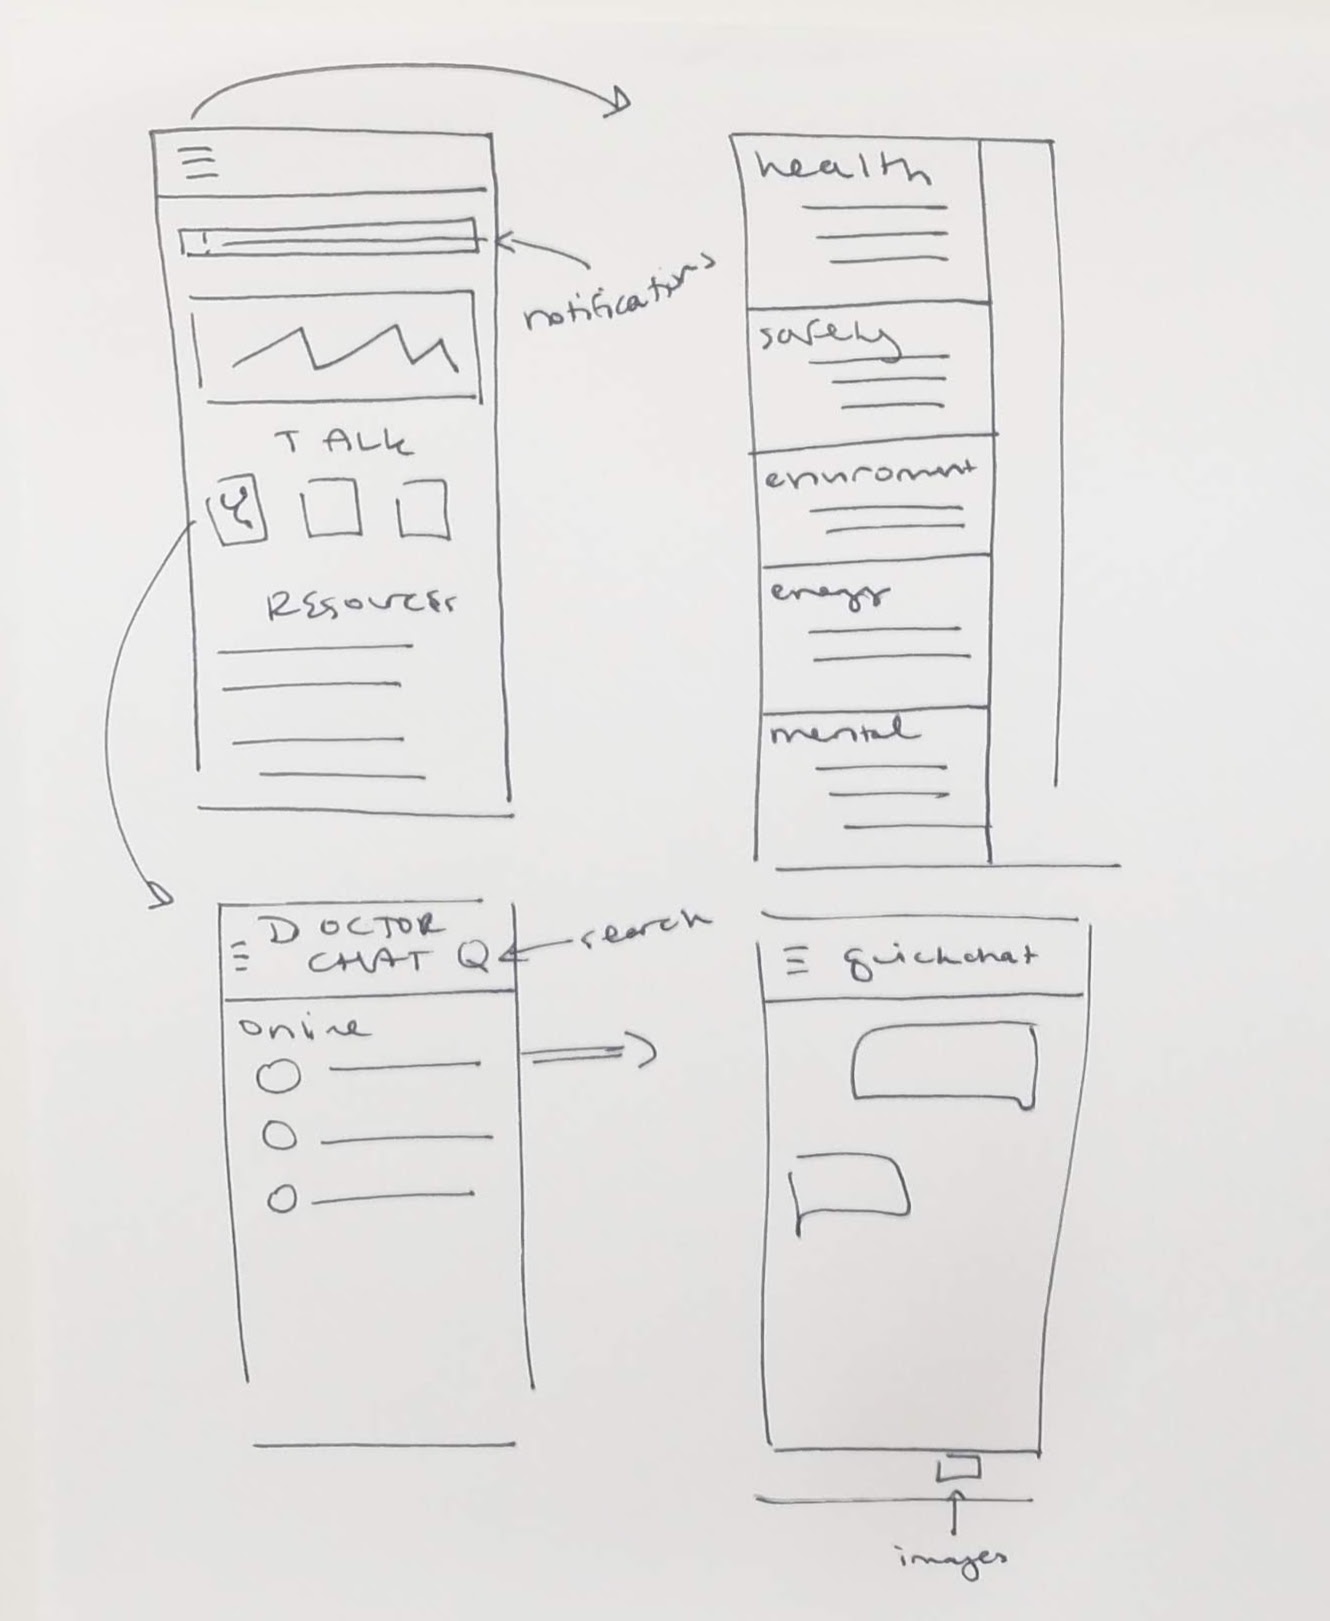 notifications
TALK
RESOURCES
health
safety
enviroment
energy
mental
DOCTOR
CHAT
search
online
quickchat
images